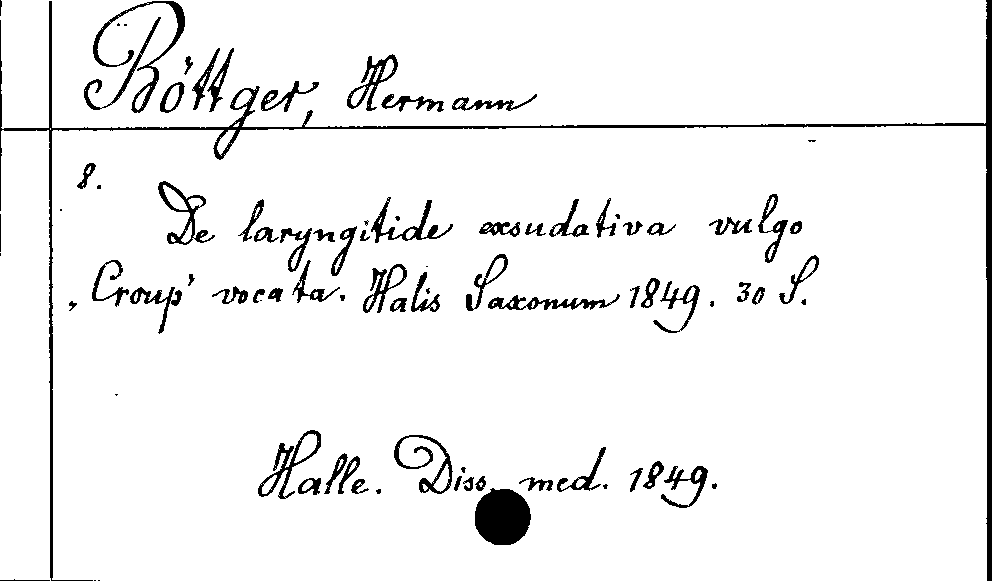 Böttger, Hermann
8.
De laryngitide exsudativa vulgo
„Croup" vocata. Halis Saxonum 1849. 30 S.
Halle. Diss. med. 1849.